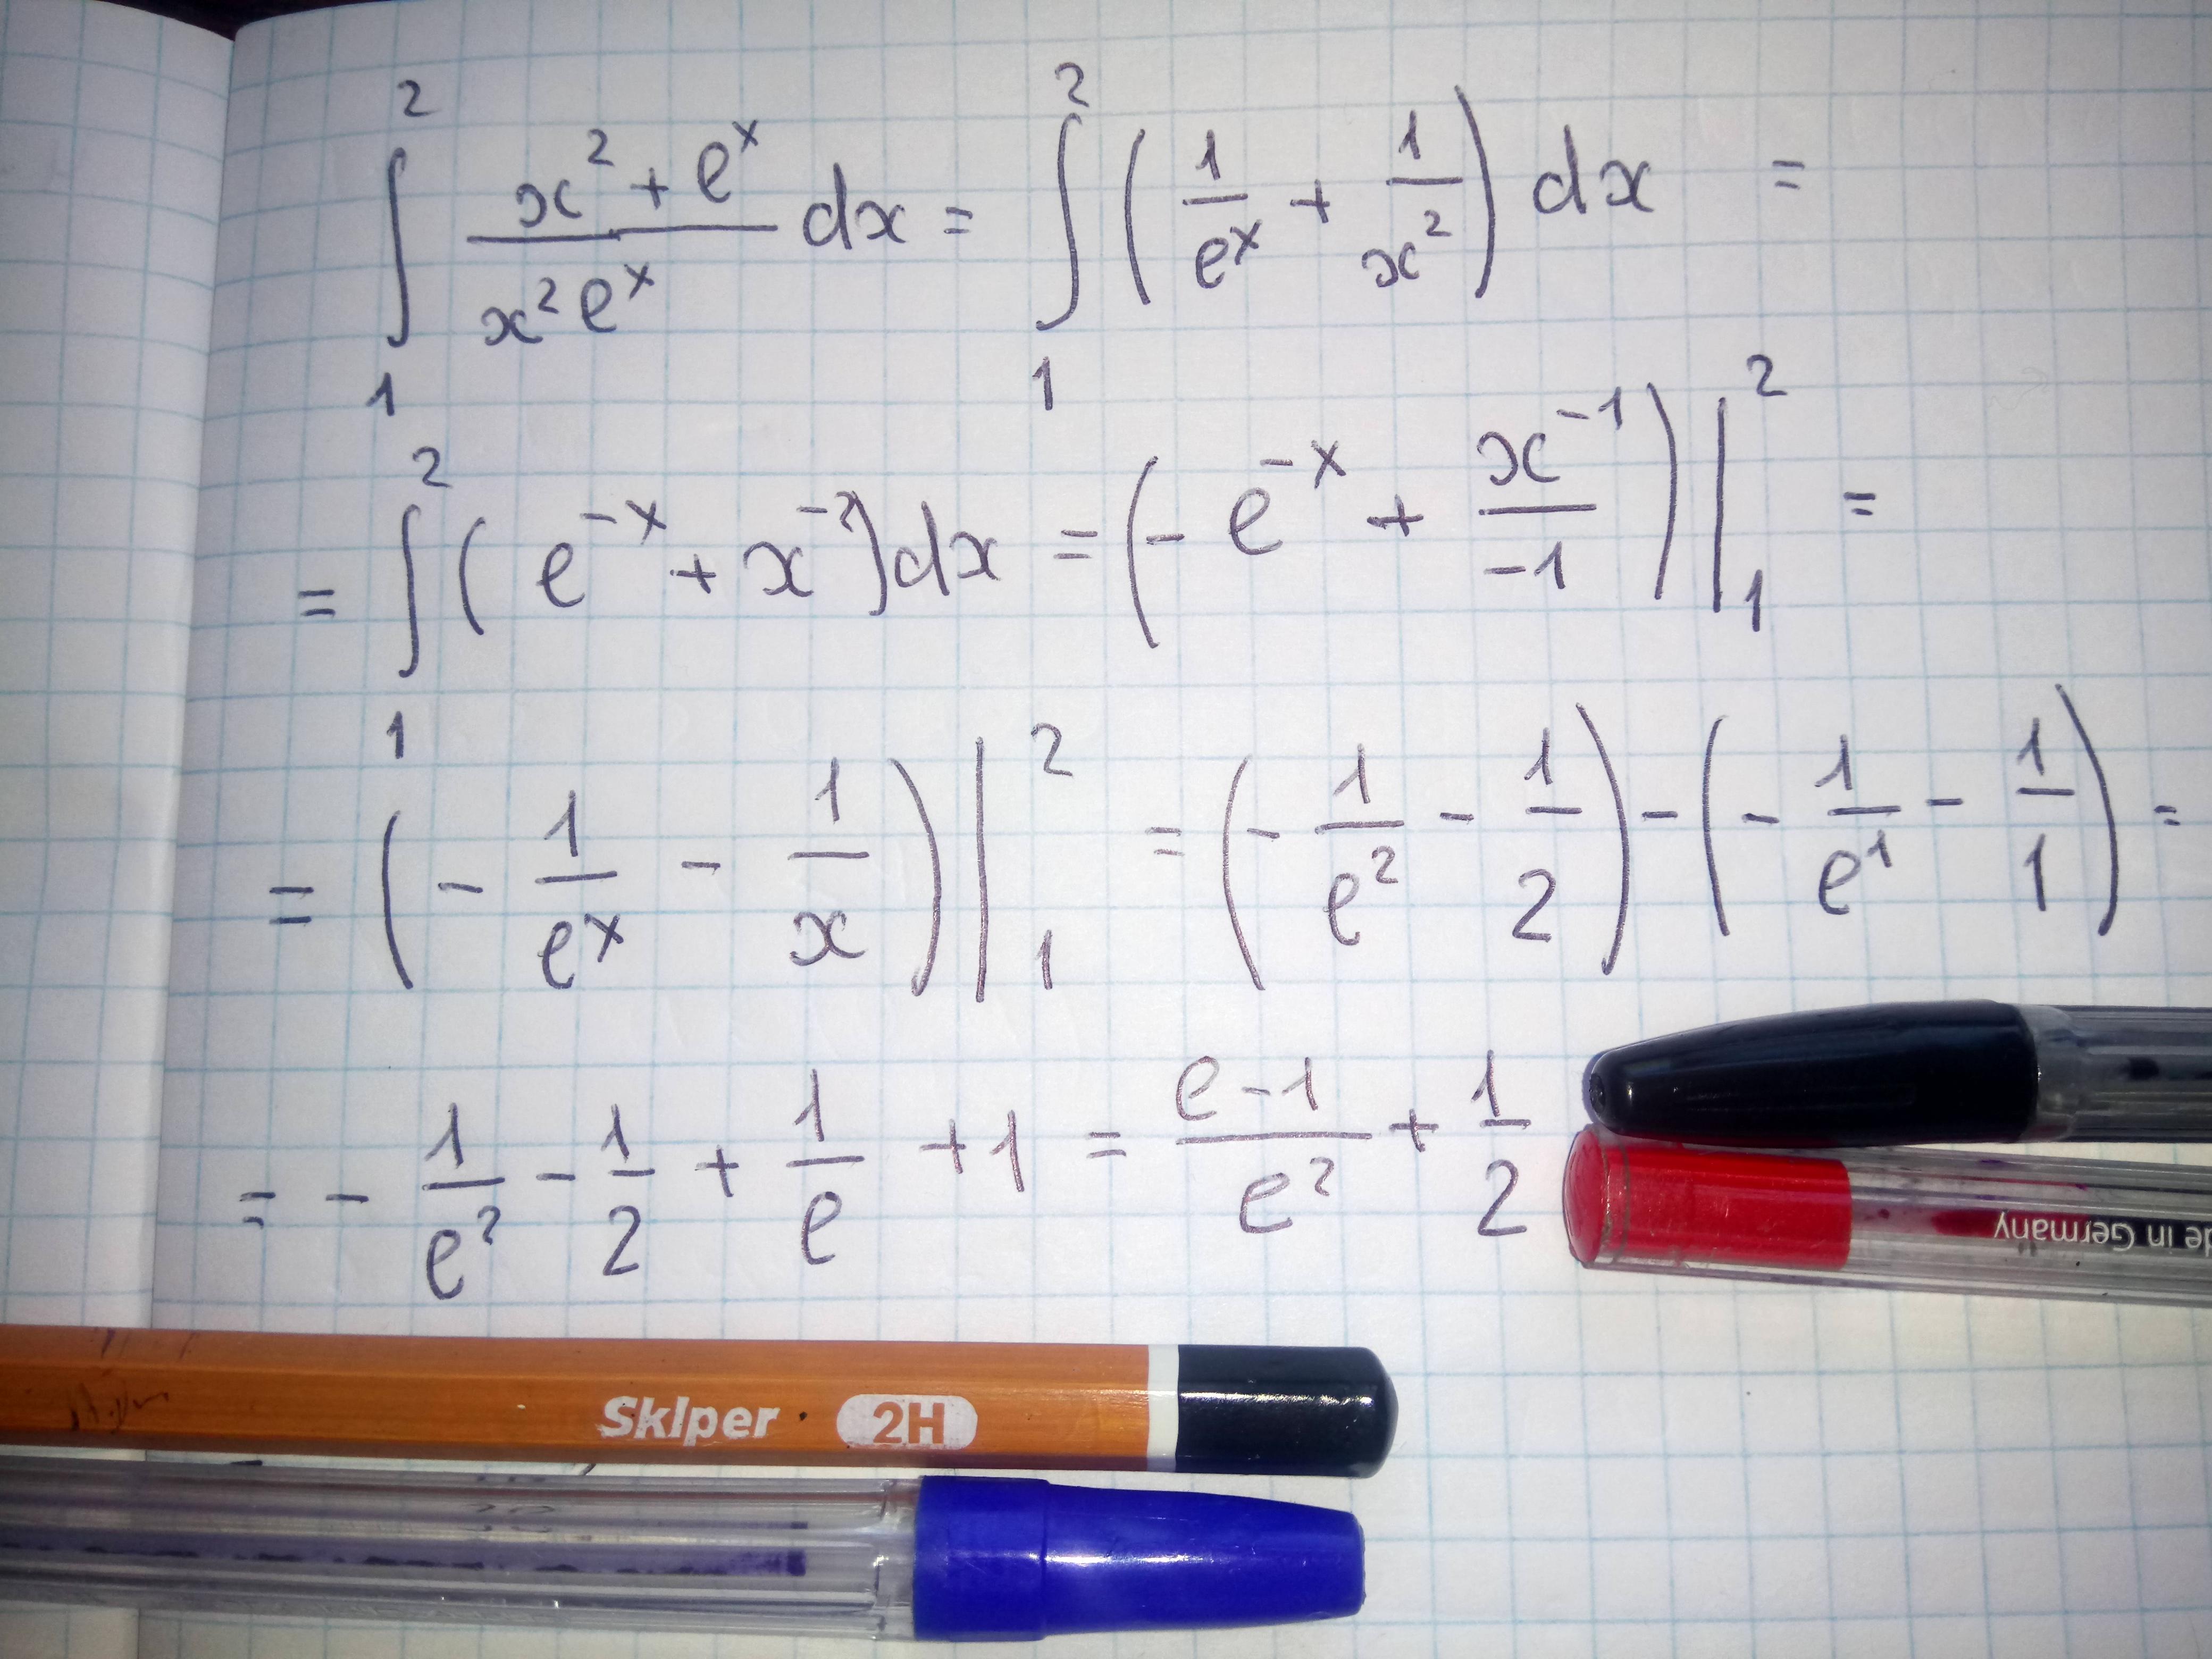 ∫₁² (x² + eˣ)/(x²eˣ) dx = ∫₁² (1/eˣ + 1/x²) dx =
= ∫₁² (e⁻ˣ + x⁻²) dx = (- e⁻ˣ + x⁻¹/-1) |₁² =
= (- 1/eˣ - 1/x) |₁² = (- 1/e² - 1/2) - (- 1/e¹ - 1/1) =
= - 1/e² - 1/2 + 1/e + 1 = (e - 1)/e² + 1/2
de in Germany
Skiper · 2H